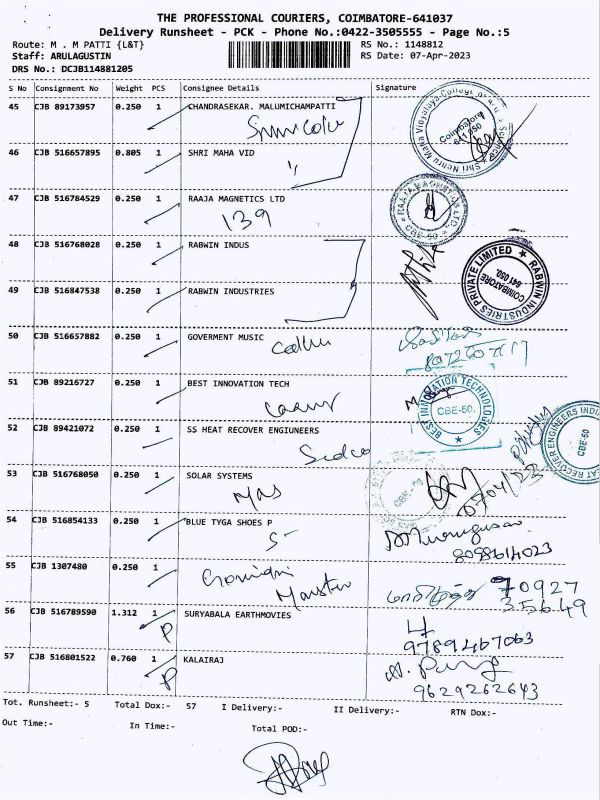 THE PROFESSIONAL COURIERS, COIMBATORE-641037
Delivery Runsheet - PCK - Phone No.:0422-3505555 - Page No.:5
Route: M . M PATTI {L&T}
RS No.: 1148812
Staff: ARULAGUSTIN
RS Date: 07-Apr-2023
DRS No.: DCJB114881205
S No Consignment No Weight PCS Consignee Details Signature
45 CJB 89173957 0.250 1 CHANDRASEKAR. MALUMICHAMPATTI
Coimbatore
641 050
46 CJB 516657895 0.805 1 SHRI MAHA VID
47 CJB 516784529 0.250 1 RAAJA MAGNETICS LTD
139
CBE-50
48 CJB 516768028 0.250 1 RABWIN INDUS
RABWIN INDUSTRIES PRIVATE LIMITED
COIMBATORE
641 050.
49 CJB 516847538 0.250 1 RABWIN INDUSTRIES
50 CJB 516657882 0.250 1 GOVERMENT MUSIC
51 CJB 89216727 0.250 1 BEST INNOVATION TECH
BEST INNOVATION TECHNOLOGIES
CBE-50.
52 CJB 89421072 0.250 1 SS HEAT RECOVER ENGIUNEERS
CBE-50
53 CJB 516768050 0.250 1 SOLAR SYSTEMS
54 CJB 516854133 0.250 1 BLUE TYGA SHOES P
55 CJB 1307480 0.250 1
56 CJB 516789590 1.312 1 SURYABALA EARTHMOVIES
P
9789467063
57 CJB 516801522 0.760 1 KALAIRAJ
P
9629262643
Tot. Runsheet:- 5 Total Dox:- 57 I Delivery:- II Delivery:- RTN Dox:-
Out Time:- In Time:- Total POD:-